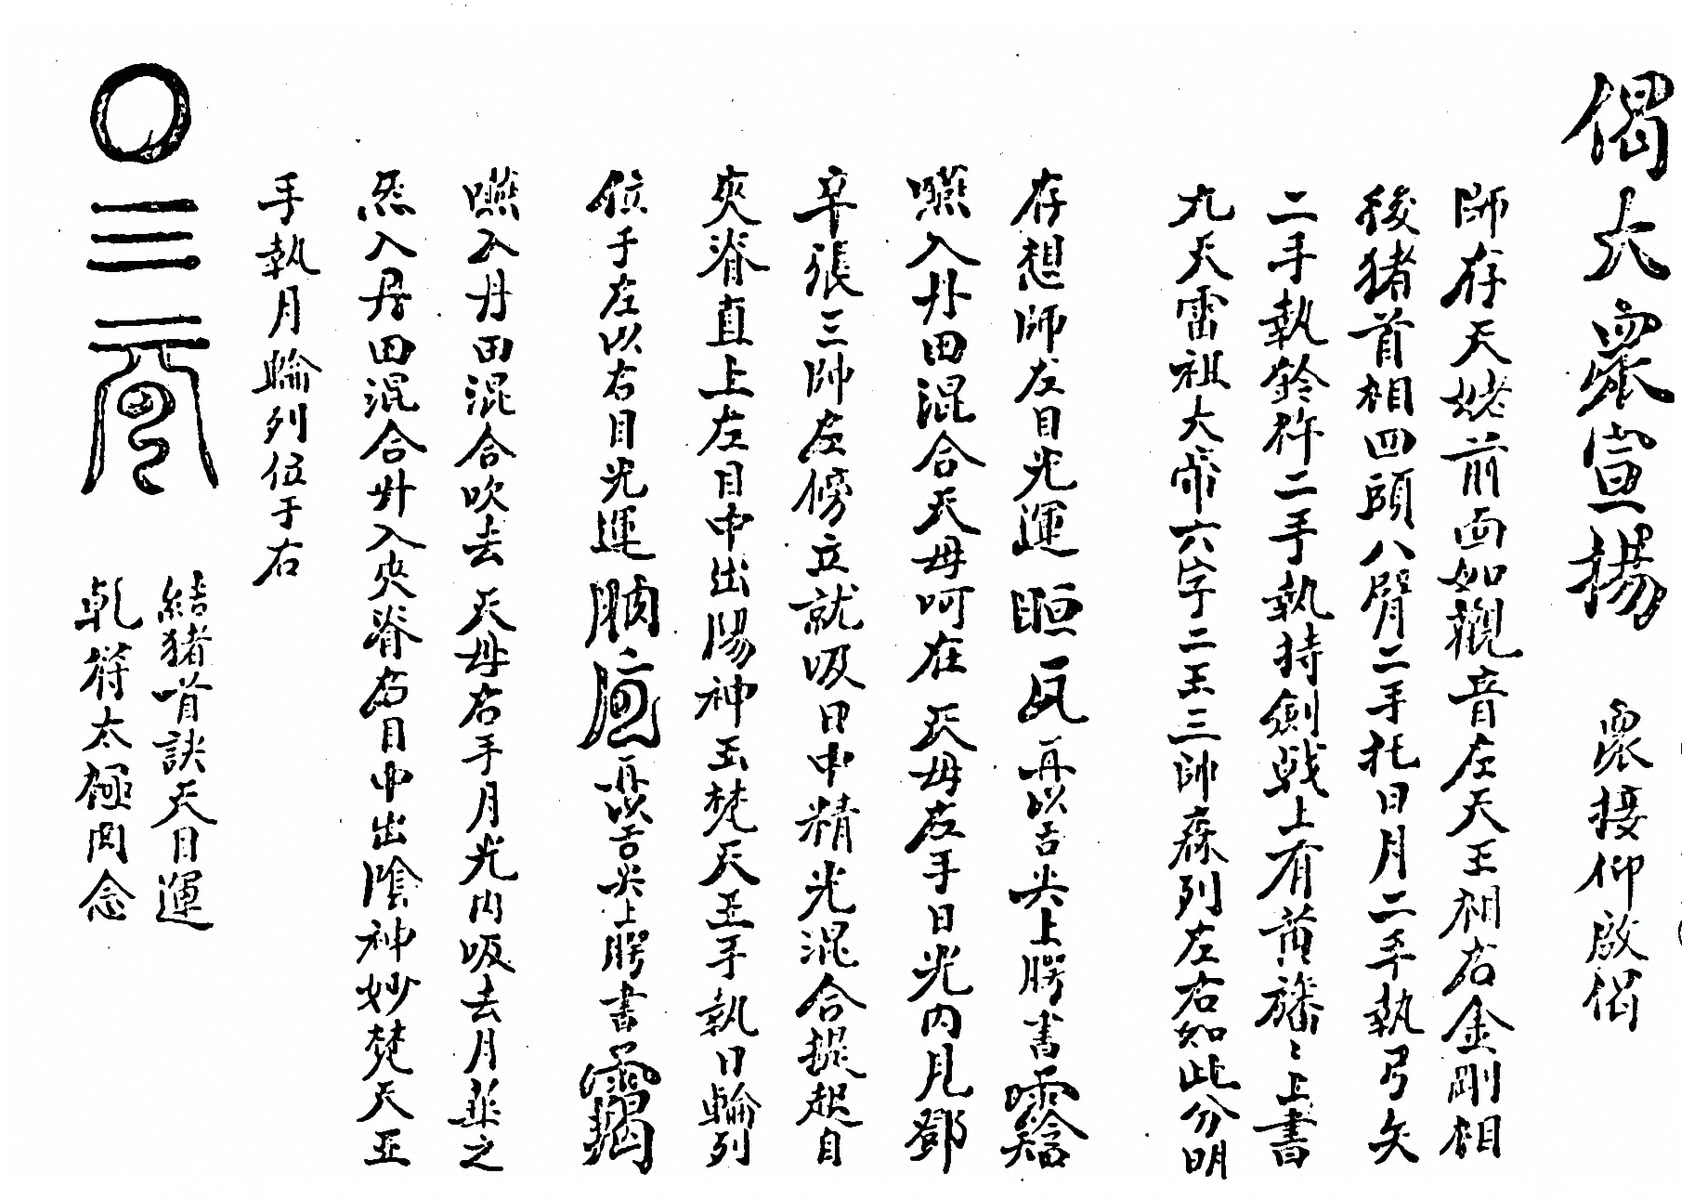 偈大衆宣揚 衆接仰啟偈
師存天姥前面如觀音左天王相右金剛相
後猪首相四頭八臂二手托日月二手執弓矢
二手執鈴杵二手執持劍戟上有黃旛〻上書
九天雷祖大帝六字二王三帥森列左右如此分明
存想師左目光運 再以舌尖上腭書
嚥入丹田混合天母呵在 天母左手日光內見鄧
辛張三帥左傍立就吸日中精光混合提起自
夾脊直上左目中出陽神玉梵天王手執日輪列
位于左以右目光運 再以舌尖上腭書
嚥入丹田混合吹去 天母右手月光內吸去月華之
炁入丹田混合升入夾脊右目中出陰神妙梵天王
手執月輪列位于右
結猪首訣天目運
乾符太極罡念